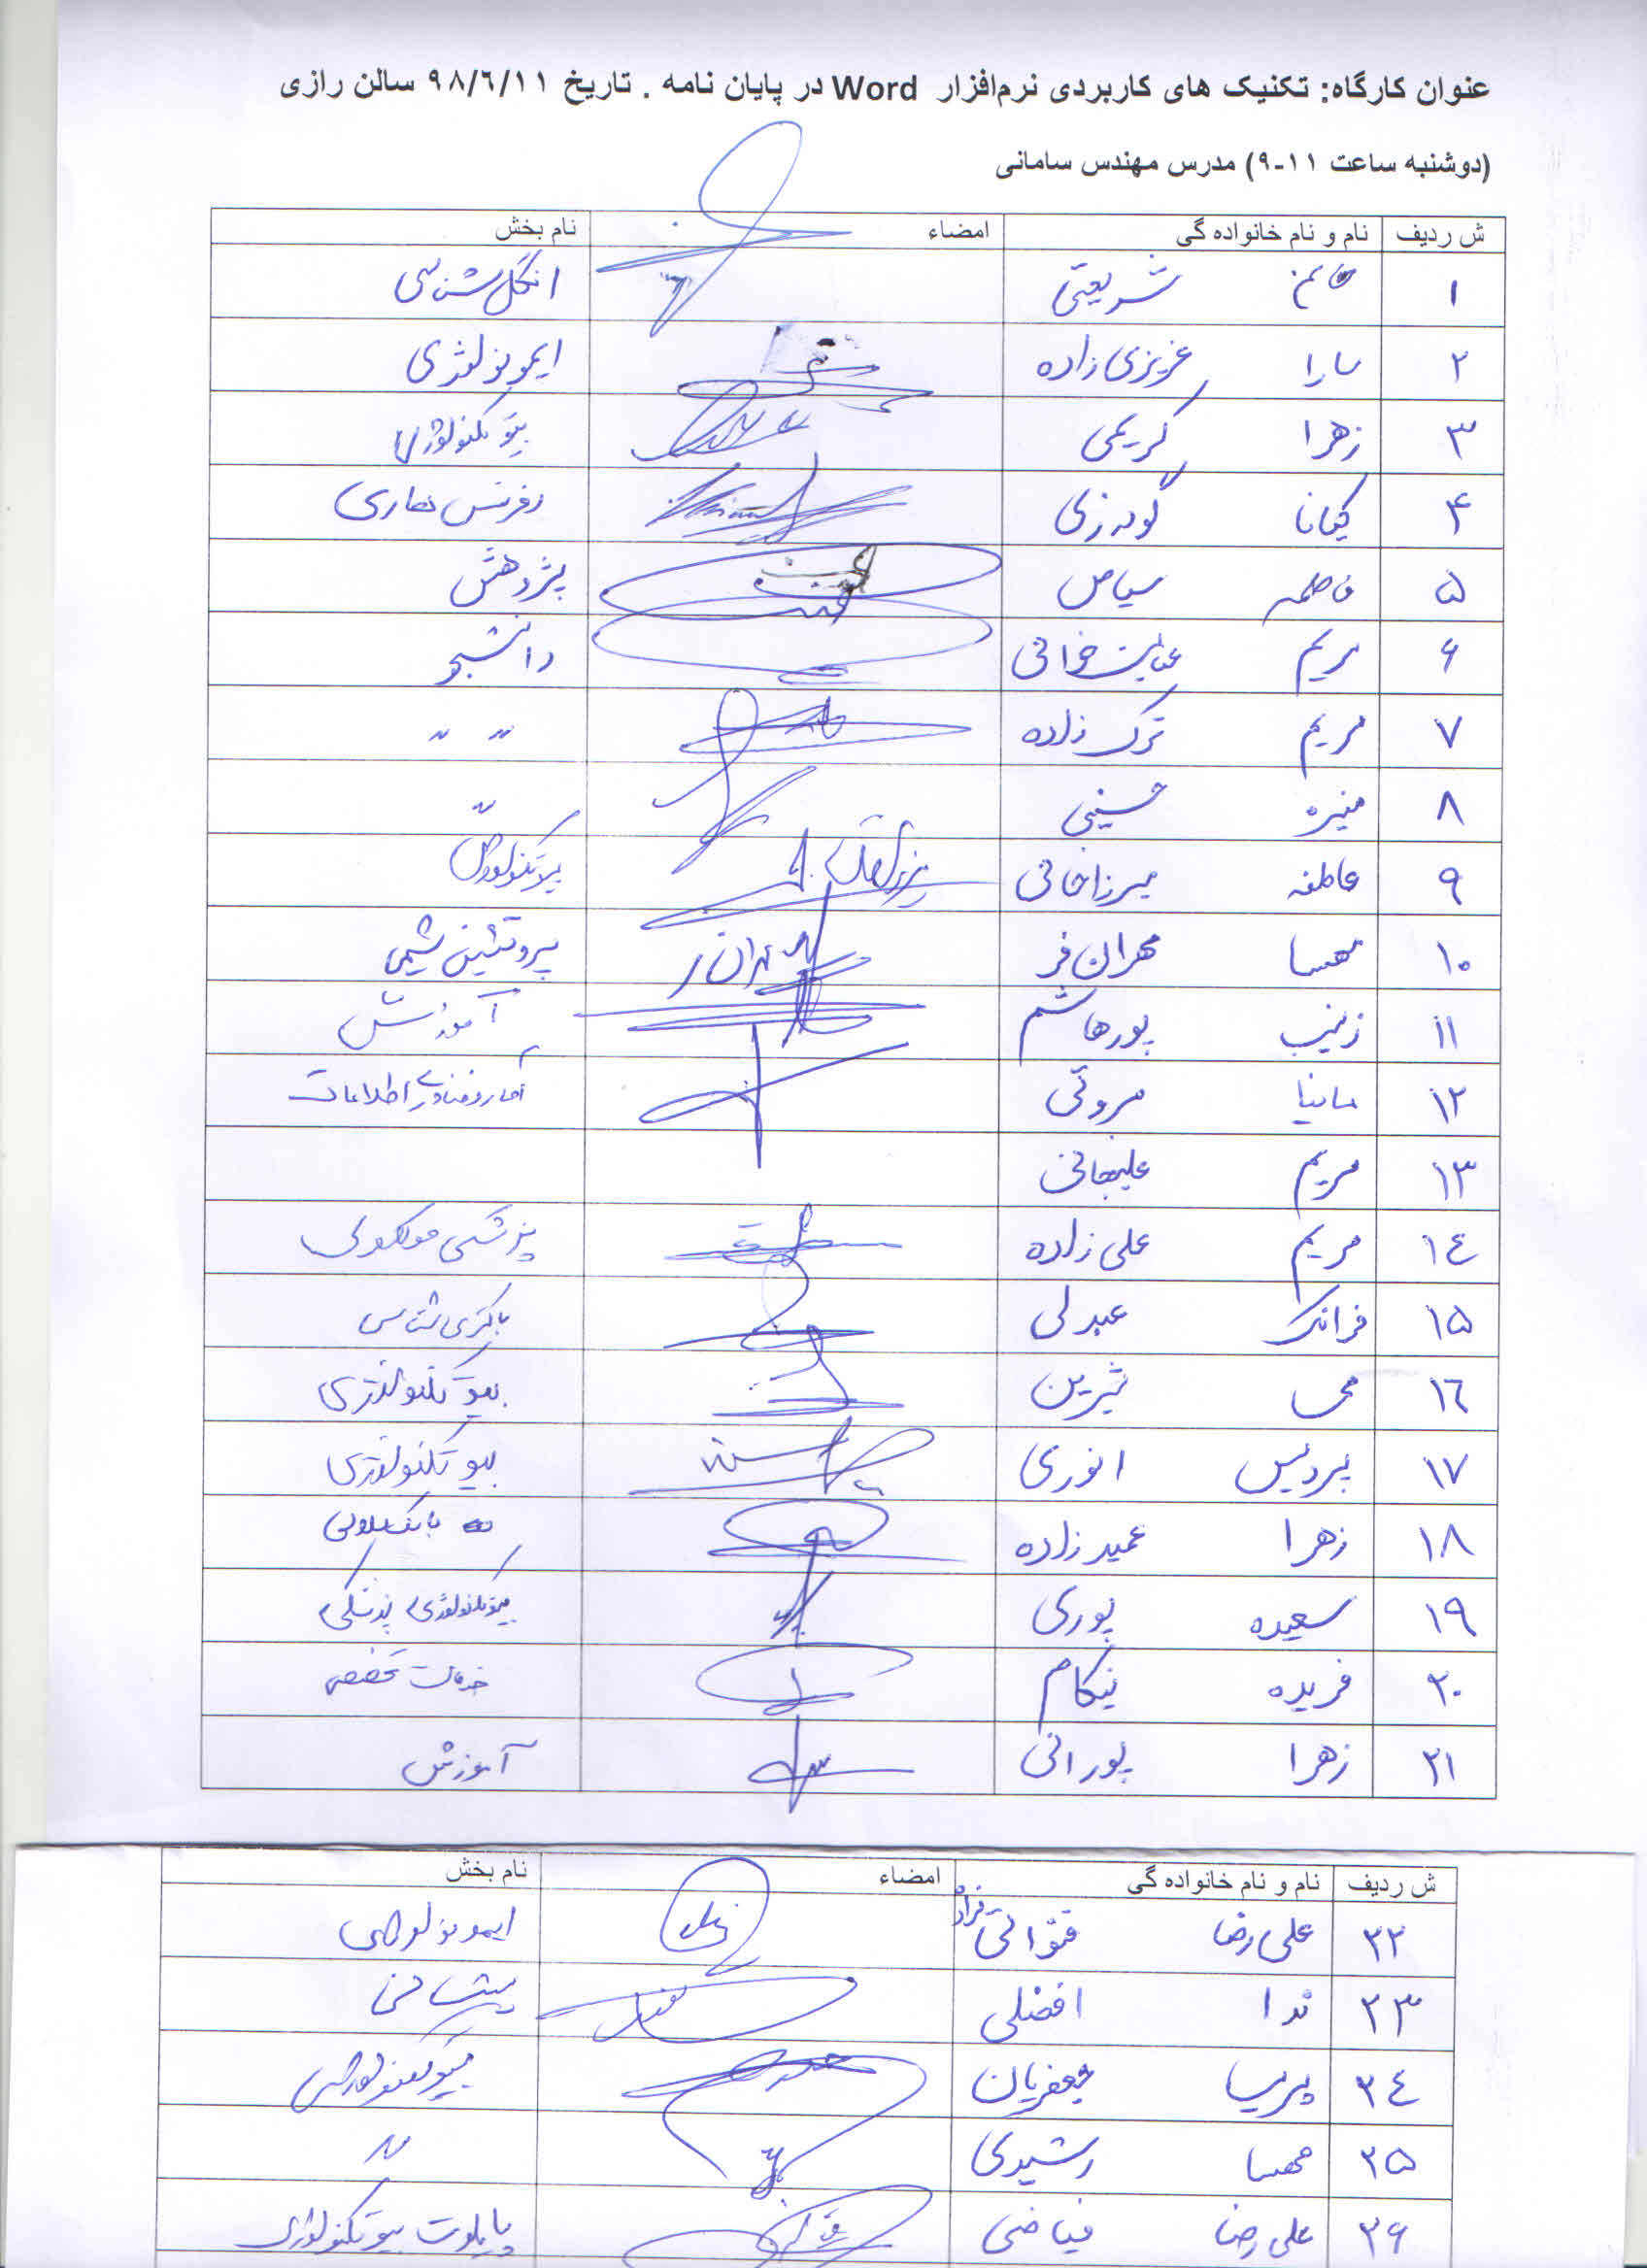 عنوان کارگاه: تکنیک های کاربردی نرم‌افزار Word در پایان نامه . تاریخ ۹۸/٦/۱۱ سالن رازی
(دوشنبه ساعت ۱۱-۹) مدرس مهندس سامانی
ش ردیف نام و نام خانواده گی امضاء نام بخش
۱ شریعتی انگل شناسی
۲ سارا عزیزی زاده ایمونولوژی
۳ زهرا کریمی بیوتکنولوژی
۴ کیانا گودرزی رفرنس هاری
۵ فاطمه پژوهش
۶ مریم دانشجو
۷ مریم ترک زاده " "
۸ منیره حسینی "
۹ عاطفه میرزاخانی بیوتکنولوژی
۱۰ مهسا مهران فر پروتئین شیمی
۱۱ زینب پورهاشم آموزش
۱۲ مانیا مروتی آمار و فناوری اطلاعات
۱۳ مریم علیجانی
۱٤ مریم علی زاده پزشکی مولکولی
۱۵ فرانک عبدلی باکتری شناسی
۱٦ شیرین بیوتکنولوژی
۱۷ پردیس انوری بیوتکنولوژی
۱۸ زهرا عمیدزاده بانک سلولی
۱۹ سعیده پوری بیوتکنولوژی پزشکی
۲۰ فریده نیکام خدمات تخصصی
۲۱ زهرا پورانی آموزش
ش ردیف نام و نام خانواده گی امضاء نام بخش
۲۲ علی رضا ایمونولوژی
۲۳ ندا افضلی
۲٤ پریسا جعفریان بیوتکنولوژی
۲۵ مهسا رشیدی "
۲۶ علی رضا فیاضی پایلوت بیوتکنولوژی